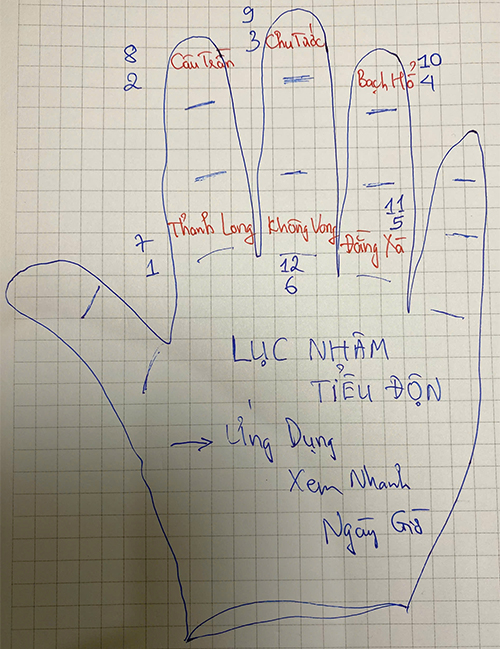 9
8
Câu Trần
3
Chu Tước
10
2
Bạch Hổ
4
7
Thanh Long
Không Vong
11
5
1
Đằng Xà
12
6
LỤC NHÂM
TIỂU ĐỘN
→ Ứng Dụng
Xem Nhanh
Ngày Giờ